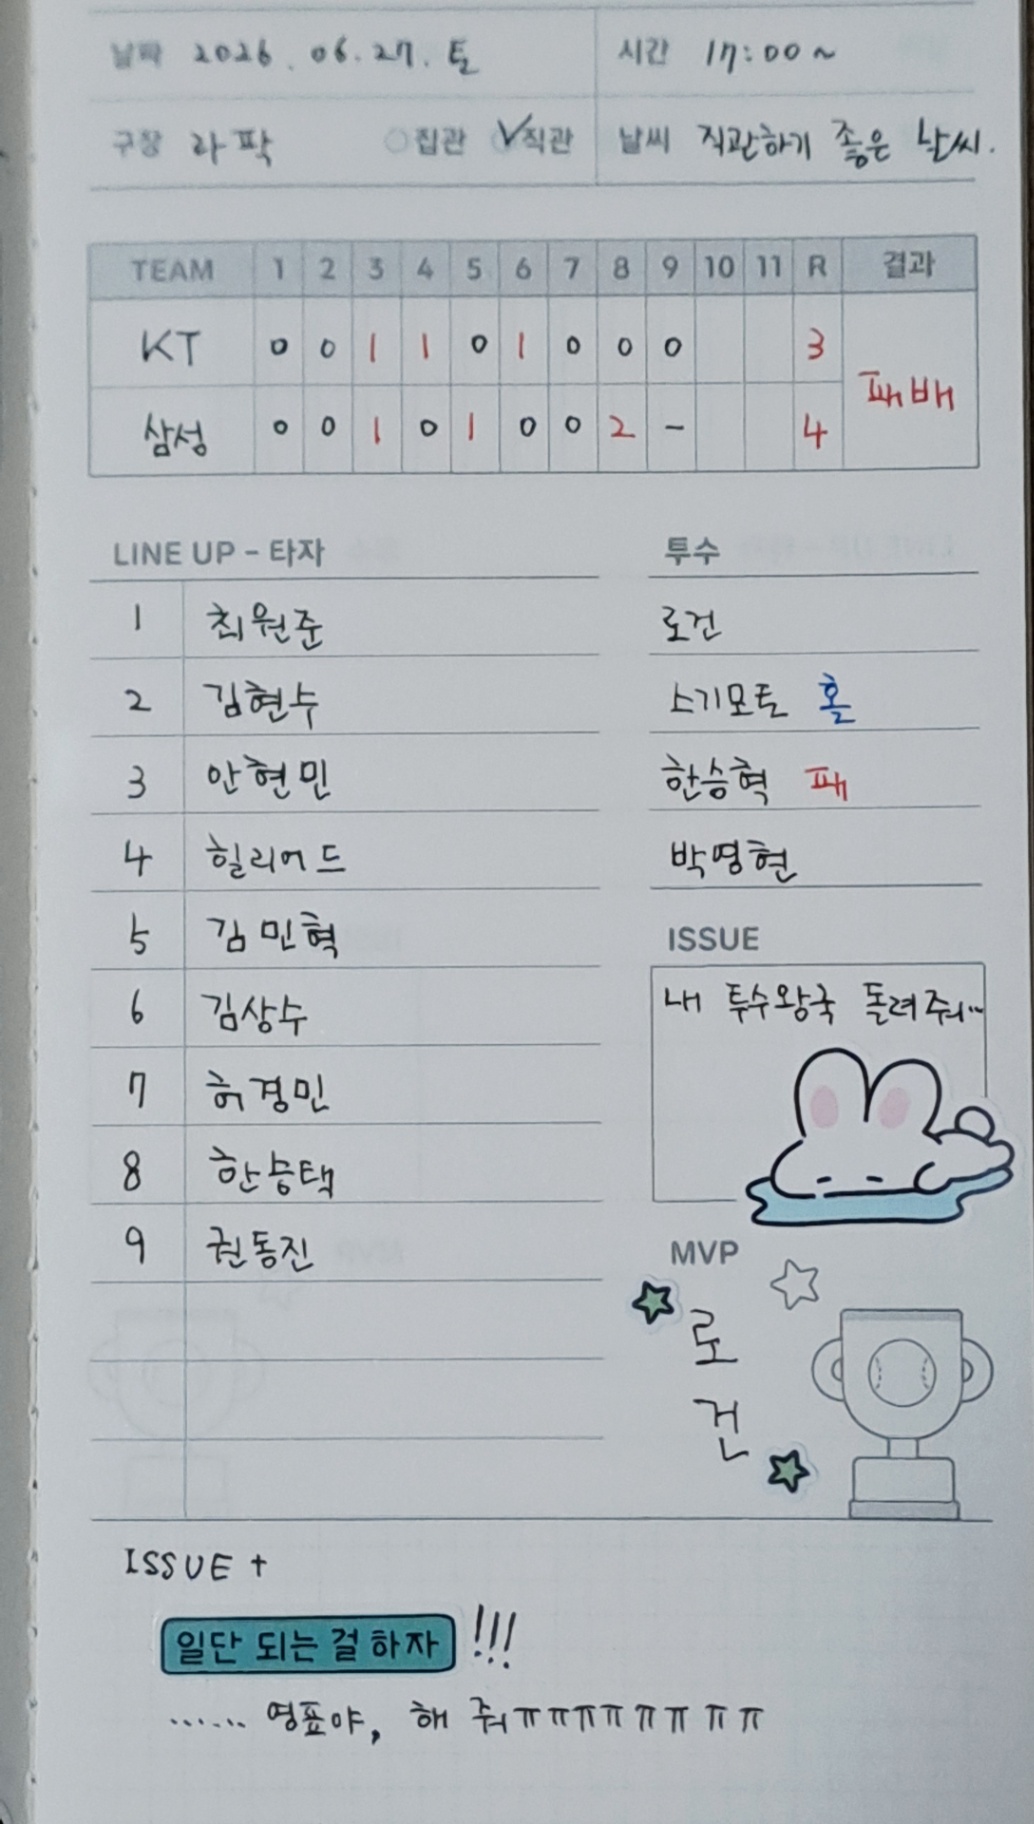 날짜 2026. 06. 27. 토 시간 17:00~
구장 라팍 집관 직관 날씨 직관하기 좋은 날씨.
TEAM 1 2 3 4 5 6 7 8 9 10 11 R 결과
KT 0 0 1 1 0 1 0 0 0 3 패배
삼성 0 0 1 0 1 0 0 2 - 4
LINE UP - 타자
1 최원준
2 김현수
3 안현민
4 힐리어드
5 김민혁
6 김상수
7 허경민
8 한승택
9 권동진
투수
로건
스기모토 홀
한승혁 패
박영현
ISSUE
내 투수왕국 돌려줘...
MVP
로건
ISSUE +
일단 되는 걸 하자 !!!
...... 영표야, 해 줘ㅠㅠㅠㅠㅠㅠㅠㅠ